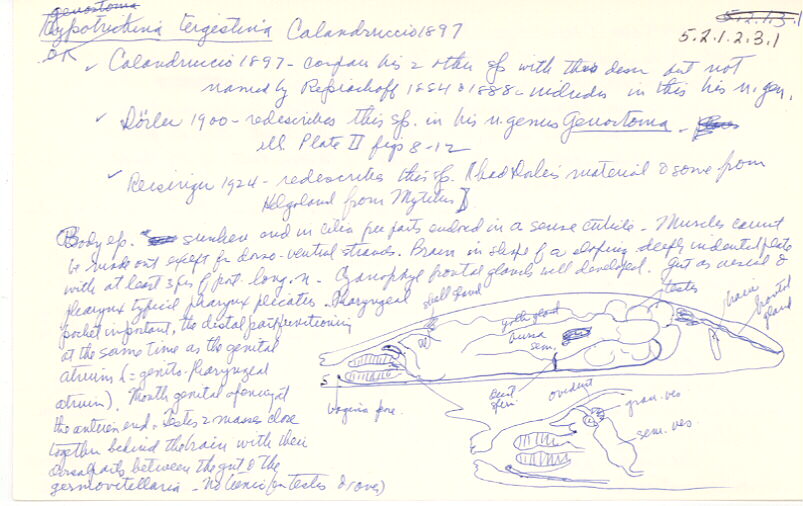 Genostoma
Hypotrichina tergestina Calandruccio 1897
5.2.1.3.1
5.2.1.2.3.1
OK
✓ Calandruccio 1897 - compares his 2 other sp with this descr but not
named by Repiachoff 1884 & 1888 - includes in this his n. gen.
✓ Dörler 1900 - redescribes this sp. in his n. genus Genostoma -
ill. Plate II figs 8-12
✓ Reisinger 1924 - redescribes this sp. & had Dörler's material & some from
Helgoland from Mytilus
Body ep. sunken and in cilia free parts enclosed in a dense cuticle - Muscles cannot
be made out except for dorso-ventral strands. Brain in shape of a sloping deeply indented plate
with at least 3 prs of post. long. n. Cyanophil frontal glands well developed. Gut as usual &
pharynx typical pharynx plicatus. Pharyngeal
pocket important, the distal part functioning
at the same time as the genital
atrium (= genito-pharyngeal
atrium). Mouth genital opening at
the anterior end. Testes 2 masses close
together behind the brain with their
dorsal parts between the gut & the
germovitellaria - No tunic (on testes & ovary)
shell gland
yolk gland
bursa
sem.
testes
brain
frontal
gland
vagina pore
duct
sperm.
oviduct
gran. ves
sem. ves